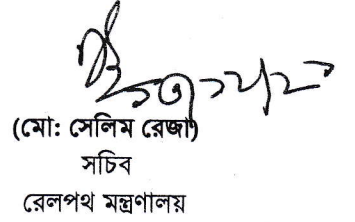 (মো: সেলিম রেজা)
সচিব
রেলপথ মন্ত্রণালয়